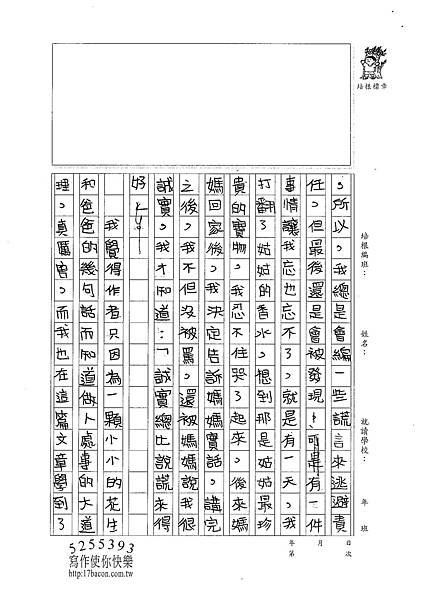 培根標章
培根編班：　姓名：　就讀學校：　年　班
，所以，我總是會編一些謊言來逃避責
任，但最後還是會被發現，可是有一件
事情讓我忘也忘不了，就是有一天，我
打翻了姑姑的香水，想到那是姑姑最珍
貴的寶物，我忍不住哭了起來，後來媽
媽回家後，我決定告訴媽媽實話，講完
之後，我不但沒被罵，還被媽媽說我很
誠實，我才知道：「誠實總比說謊來得
好」！
我覺得作者只因為一顆小小的花生
和爸爸的幾句話而知道做人處事的大道
理，真厲害，而我也在這篇文章學到了
年　月　日
第　次
5255393
寫作使你快樂
http://17bacon.com.tw